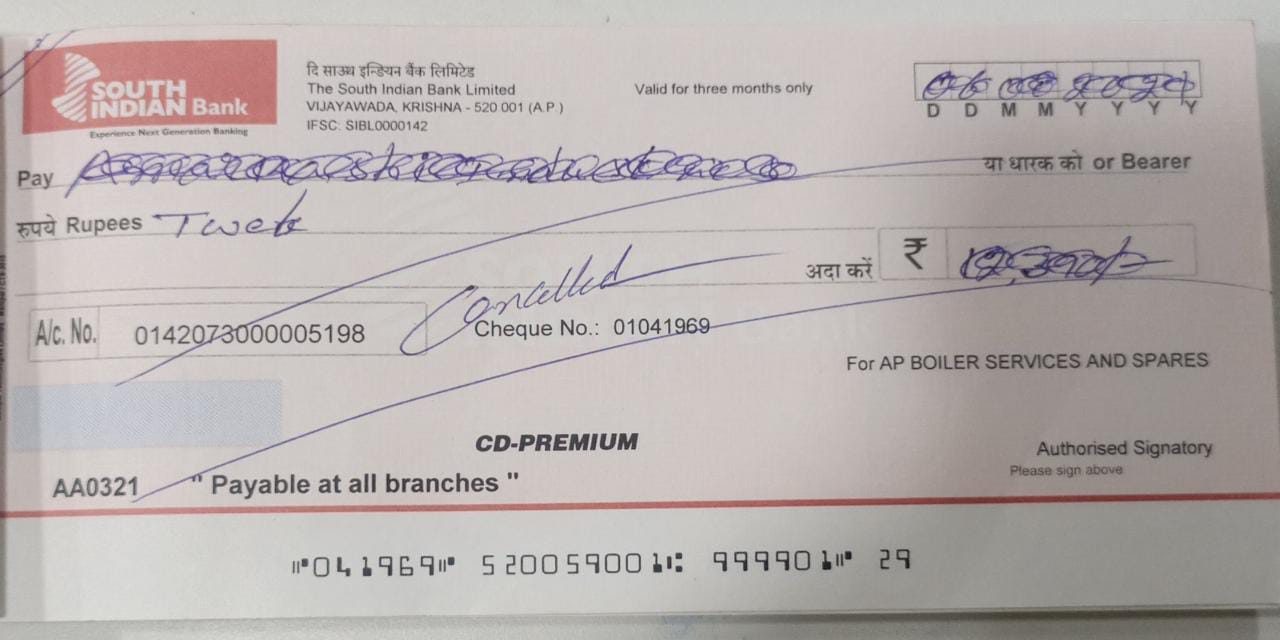 SOUTH
INDIAN Bank
Experience Next Generation Banking
दि साउथ इन्डियन बैंक लिमिटेड
The South Indian Bank Limited
VIJAYAWADA, KRISHNA - 520 001 (A.P.)
IFSC: SIBL0000142
Valid for three months only
D D M M Y Y Y Y
Pay
या धारक को or Bearer
रुपये Rupees
अदा करें ₹
Cancelled
A/c. No. 0142073000005198
Cheque No.: 01041969
For AP BOILER SERVICES AND SPARES
CD-PREMIUM
Authorised Signatory
Please sign above
AA0321 " Payable at all branches "
⑈041969⑈ 520059001⑆ 999901⑈ 29